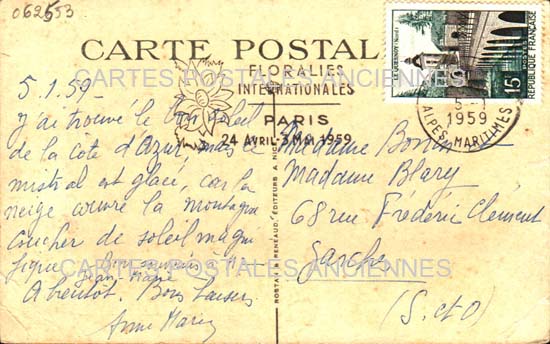 062553
CARTE POSTALE
FLORALIES
INTERNATIONALES
PARIS
24 AVRIL-3 MAI 1959
LE QUESNOY (Nord)
15F
REPUBLIQUE FRANÇAISE
5-1
1959
ALPES-MARITIMES
CARTES POSTALES ANCIENNES
5.1.59-
J'ai trouvé le soleil
de la côte d'Azur, mais le
mistral est glacé, car la
neige couvre la montagne
coucher de soleil magni-
fique. Bon souvenir à
Jean
A bientôt. Bons baisers
Anne Marie
ROSTAN & RENEAUD, EDITEURS A NICE
Madame
Madame Blary
68 rue Frédéric Clément
Garches
(S. et O)
CARTES POSTALES ANCIENNES